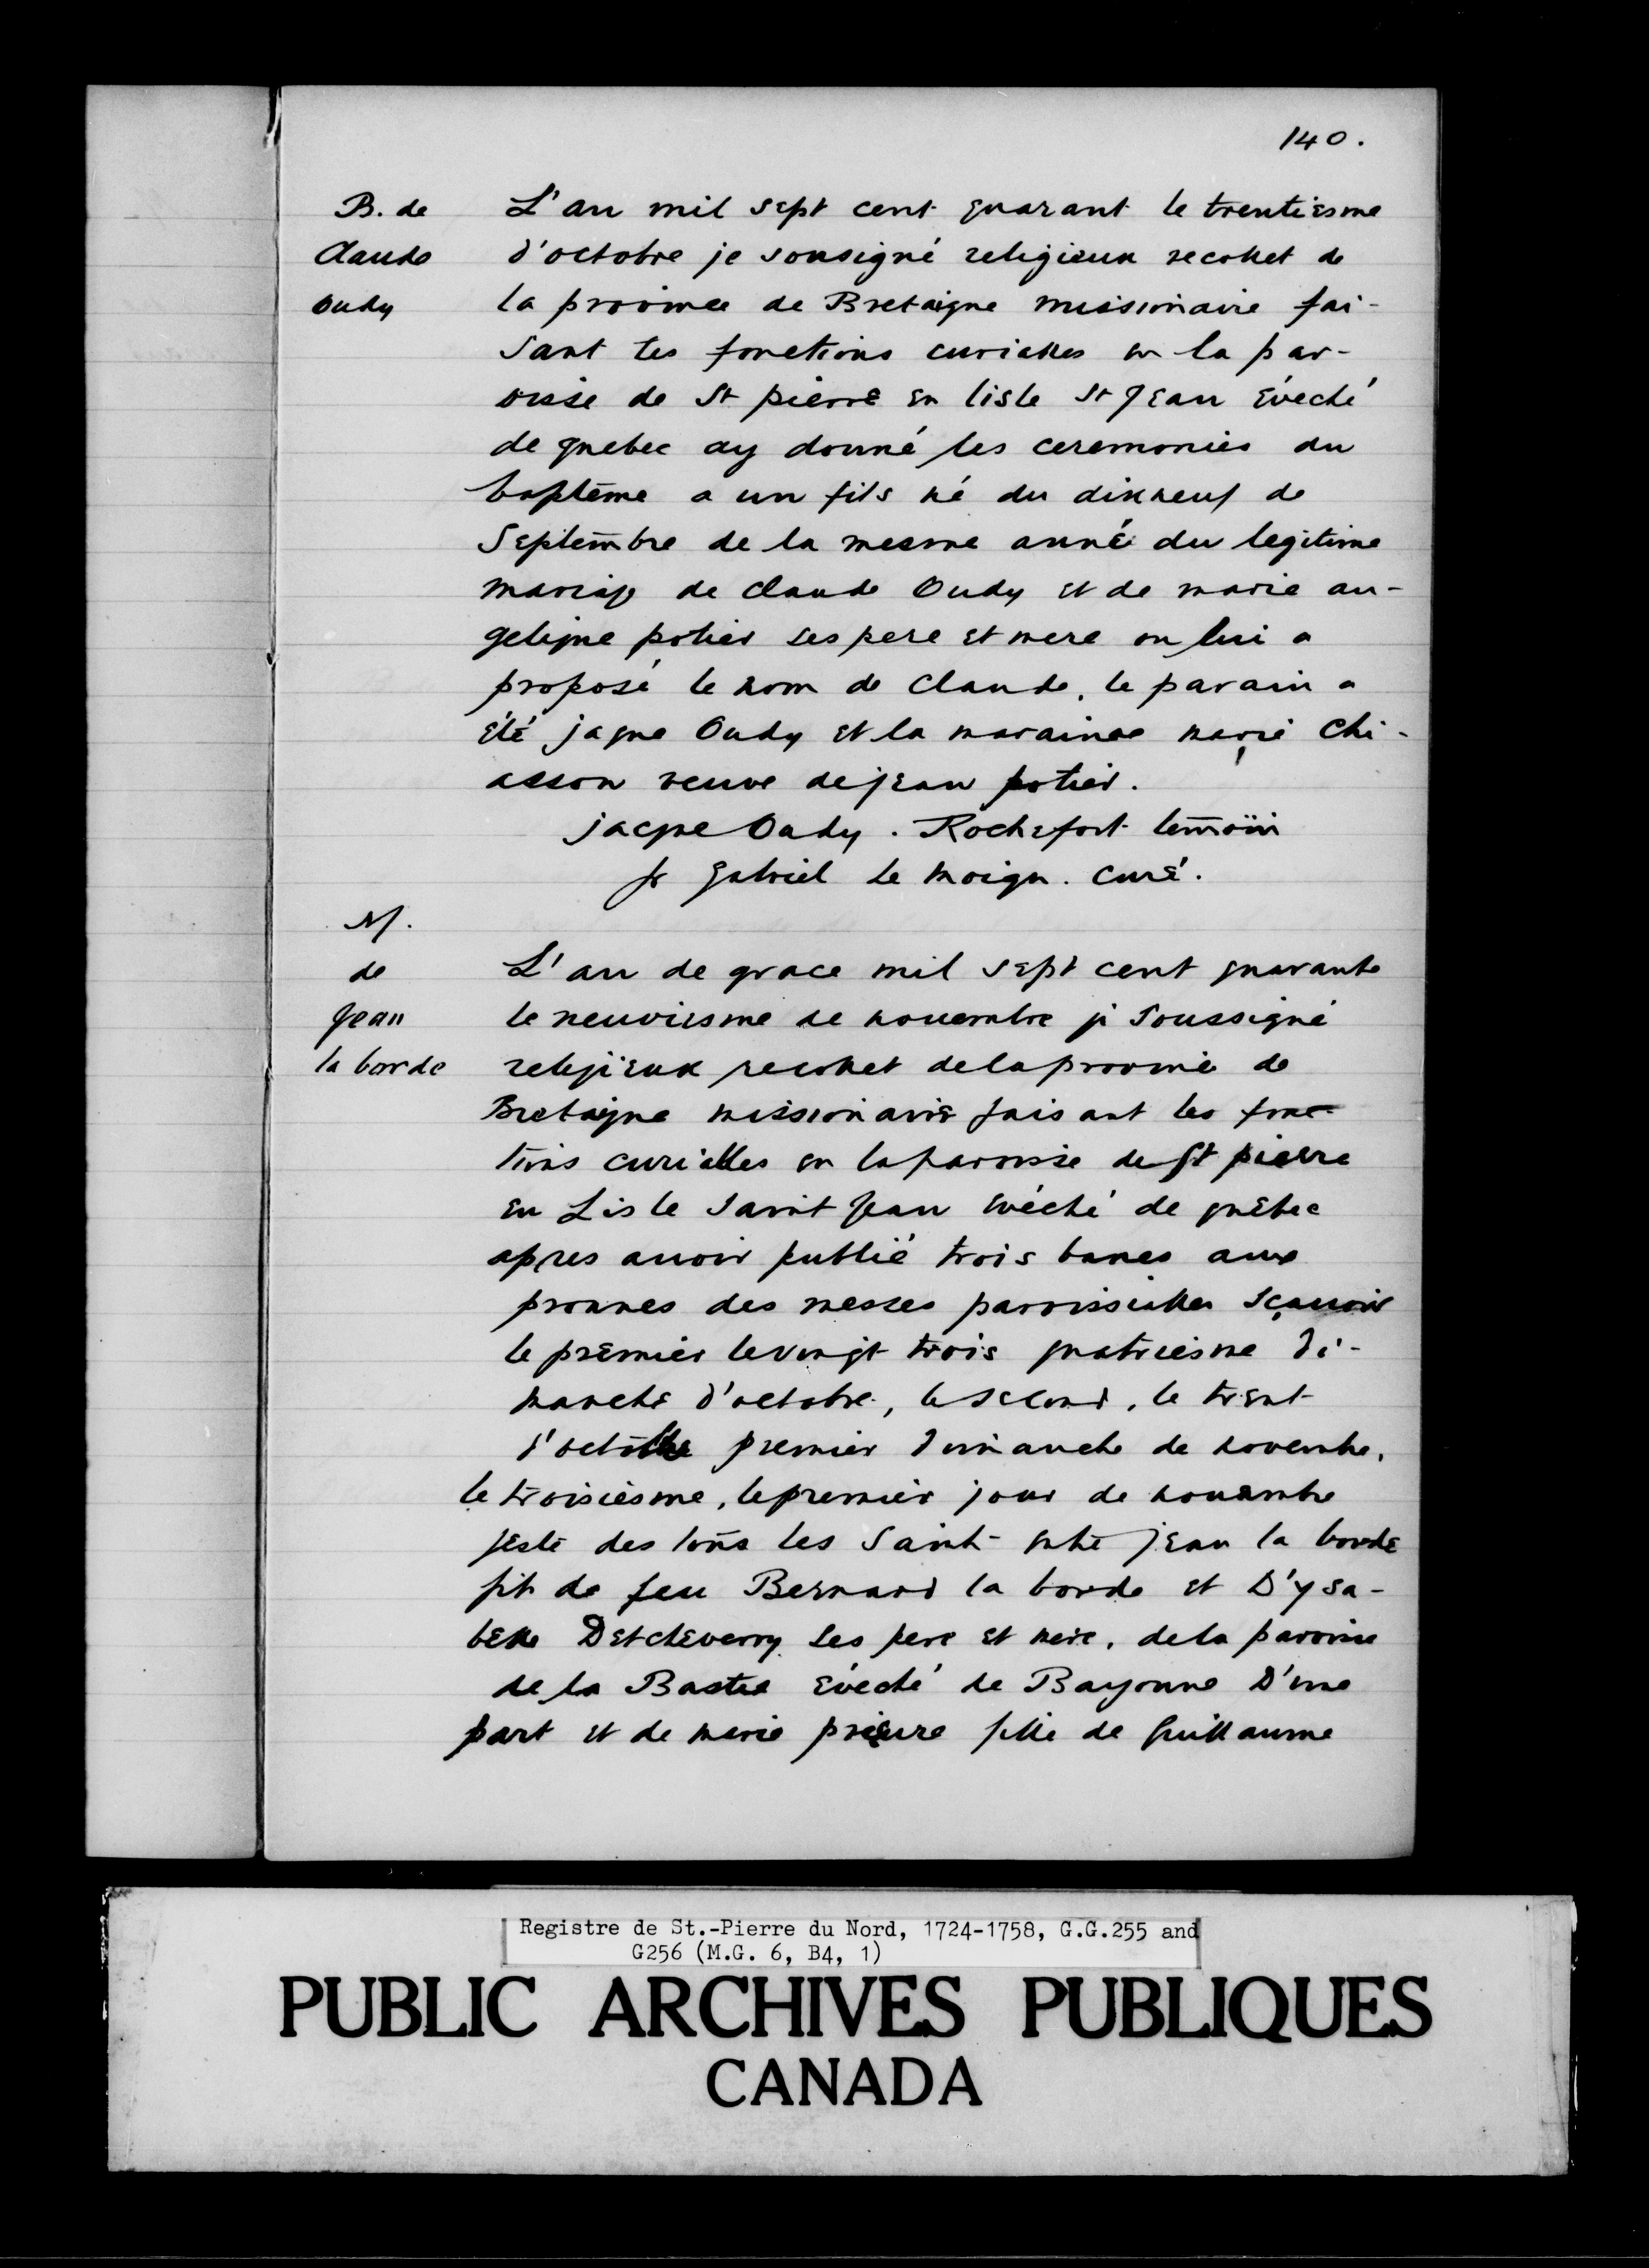 140.
B. de
Claude
Oudy
L'an mil sept cent quarant le trentiesme
d'octobre je sousigné religieux recollet de
la province de Bretaigne missionaire fai-
sant les fonctions curialles en la par-
oisse de St pierre en lisle St Jean évêché
de quebec ay donné les ceremonies du
baptême a un fils né du dixneuf de
Septembre de la mesme anné du legitime
mariage de Claude Oudy et de marie an-
gelique potier ses pere et mere on lui a
proposé le nom de Claude, le parain a
été jaque Oudy et la maraine marie Chi-
asson veuve de jean potier.
jacque Oudy. Rochefort temoin
fr gabriel le moign. curé.
M.
de
Jean
la borde
L'an de grace mil sept cent quarante
le neuviesme de nouembre je Soussigné
religieux recollet de la provinie de
Bretaigne missionaire faisant les fonc-
tions curialles en la paroisse de St pierre
en Lisle Saint Jean evéché de quebec
apres auoir publié trois bancs aux
pronnes des messes paroissialles Sçauoir
le premier le vingt trois quatriesme di-
manche d'octobre, le second, le trent
d'octobre premier dimanche de novembre,
le troisiesme, le premier jour de nouembre
feste des tous les Saint entre jean la borde
fils de feu Bernard la borde et D'ysa-
belle Detcheverry ses pere et mere, de la paroisse
de la Bastie evéché de Bayonne D'une
part et de marie prieure fille de Guillaume
Registre de St.-Pierre du Nord, 1724-1758, G.G.255 and
G256 (M.G. 6, B4, 1)
PUBLIC ARCHIVES PUBLIQUES
CANADA